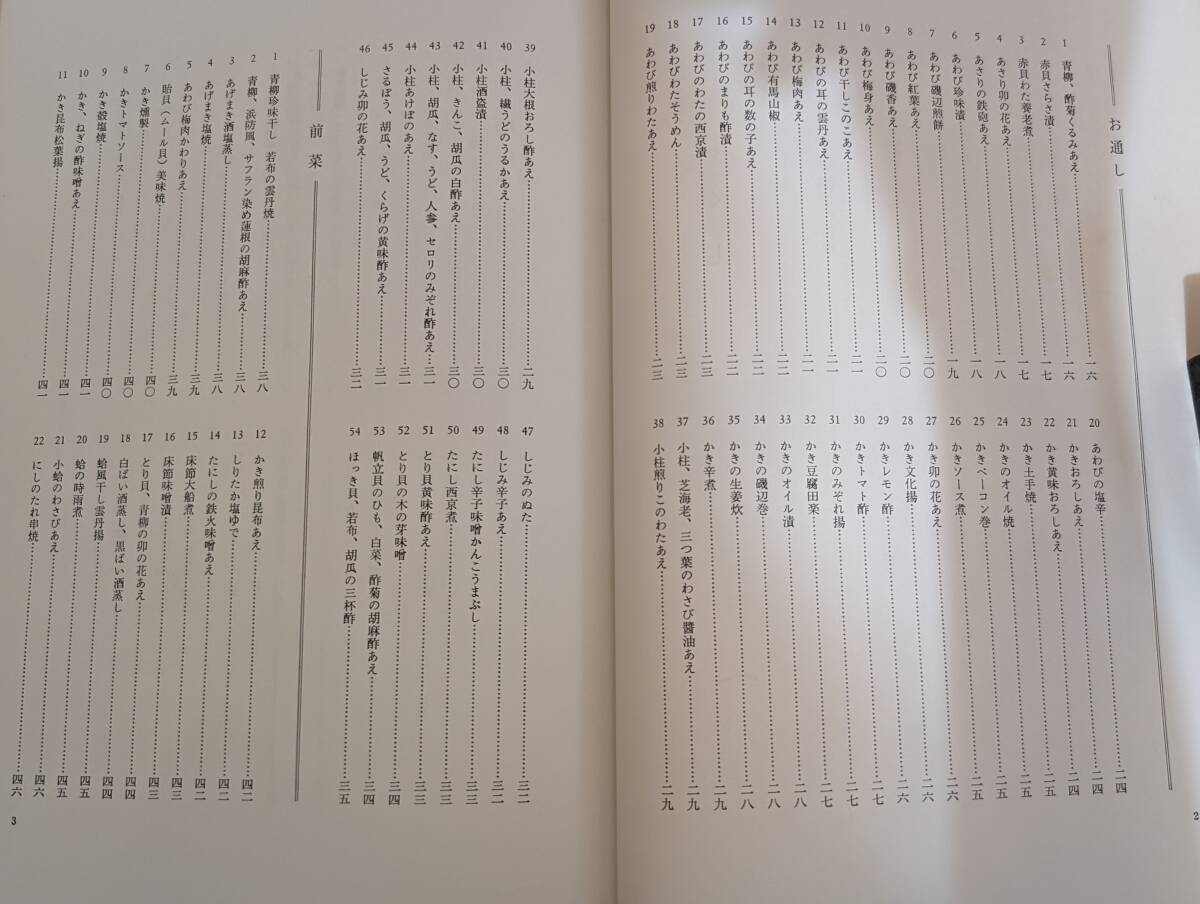 お通し
1 青柳、酢菊くるみあえ……一六
2 赤貝さらさ漬……一六
3 赤貝わた養老煮……一七
4 あさり卯の花あえ……一七
5 あさりの鉄砲あえ……一八
6 あわび珍味漬……一八
7 あわび磯辺煎餅……一九
8 あわび紅葉あえ……二〇
9 あわび磯香あえ……二〇
10 あわび梅身あえ……二〇
11 あわび干しこのこあえ……二一
12 あわびの耳の雲丹あえ……二一
13 あわび梅肉あえ……二一
14 あわび有馬山椒……二二
15 あわびの耳の数の子あえ……二二
16 あわびのまりも酢漬……二二
17 あわびのわたの西京漬……二三
18 あわびわたそうめん……二三
19 あわび煎りわたあえ……二三
20 あわびの塩辛……二四
21 かきおろしあえ……二四
22 かき黄味おろしあえ……二四
23 かき土手焼……二五
24 かきのオイル焼……二五
25 かきベーコン巻……二五
26 かきソース煮……二六
27 かき卯の花あえ……二六
28 かき文化揚……二六
29 かきレモン酢……二七
30 かきトマト酢……二七
31 かきのみぞれ揚……二七
32 かき豆腐田楽……二八
33 かきのオイル漬……二八
34 かきの磯辺巻……二八
35 かきの生姜炊……二八
36 かき辛煮……二九
37 小柱、芝海老、三つ葉のわさび醬油あえ……二九
38 小柱煎りこのわたあえ……二九
2
39 小柱大根おろし酢あえ……二九
40 小柱、繊うどのうるかあえ……三〇
41 小柱酒盗漬……三〇
42 小柱、きんこ、胡瓜の白酢あえ……三〇
43 小柱、胡瓜、なす、うど、人参、セロリのみぞれ酢あえ……三一
44 小柱あけぼのあえ……三一
45 さるぼう、胡瓜、うど、くらげの黄味酢あえ……三一
46 しじみ卯の花あえ……三二
47 しじみのぬた……三二
48 しじみ辛子あえ……三二
49 たにし辛子味噌かんこうまぶし……三三
50 たにし西京煮……三三
51 とり貝黄味酢あえ……三三
52 とり貝の木の芽味噌……三四
53 帆立貝のひも、白菜、酢菊の胡麻酢あえ……三四
54 ほっき貝、若布、胡瓜の三杯酢……三五
前菜
1 青柳珍味干し 若布の雲丹焼……三八
2 青柳、浜防風、サフラン染め蓮根の胡麻酢あえ……三八
3 あげまき酒塩蒸し……三八
4 あげまき塩焼……三九
5 あわび梅肉かわりあえ……三九
6 貽貝（ムール貝）美味焼……三九
7 かき燻製……四〇
8 かきトマトソース……四〇
9 かき殻塩焼……四〇
10 かき、ねぎの酢味噌あえ……四一
11 かき昆布松葉揚……四一
12 かき煎り昆布あえ……四二
13 しりたか塩ゆで……四二
14 たにしの鉄火味噌あえ……四二
15 床節大船煮……四三
16 床節味噌漬……四三
17 とり貝、青柳の卯の花あえ……四三
18 白ばい酒蒸し、黒ばい酒蒸し……四四
19 蛤風干し雲丹揚……四四
20 蛤の時雨煮……四五
21 小蛤のわさびあえ……四五
22 にしのたれ串焼……四六
3